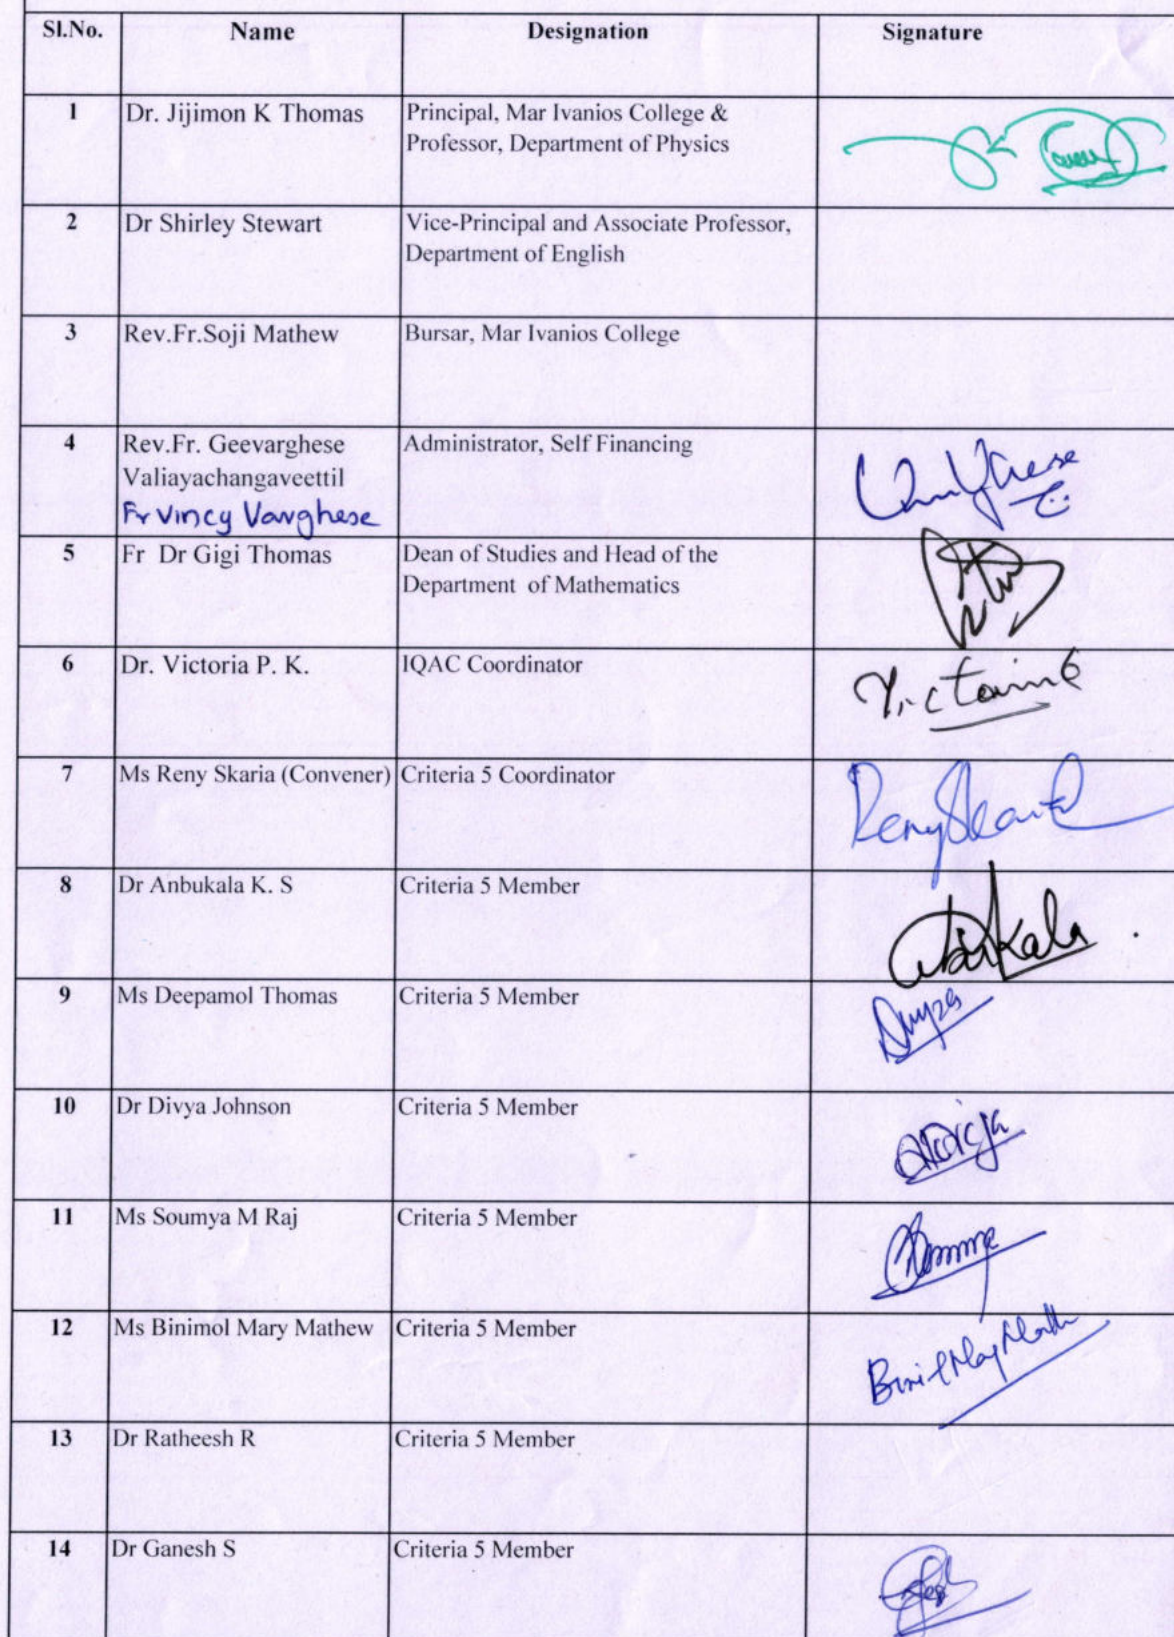 Sl.No. Name Designation Signature
1 Dr. Jijimon K Thomas Principal, Mar Ivanios College &
Professor, Department of Physics
2 Dr Shirley Stewart Vice-Principal and Associate Professor,
Department of English
3 Rev.Fr.Soji Mathew Bursar, Mar Ivanios College
4 Rev.Fr. Geevarghese Administrator, Self Financing
Valiayachangaveettil
Fr Vincy Varghese
5 Fr Dr Gigi Thomas Dean of Studies and Head of the
Department of Mathematics
6 Dr. Victoria P. K. IQAC Coordinator
7 Ms Reny Skaria (Convener) Criteria 5 Coordinator
8 Dr Anbukala K. S Criteria 5 Member
9 Ms Deepamol Thomas Criteria 5 Member
10 Dr Divya Johnson Criteria 5 Member
11 Ms Soumya M Raj Criteria 5 Member
12 Ms Binimol Mary Mathew Criteria 5 Member
13 Dr Ratheesh R Criteria 5 Member
14 Dr Ganesh S Criteria 5 Member